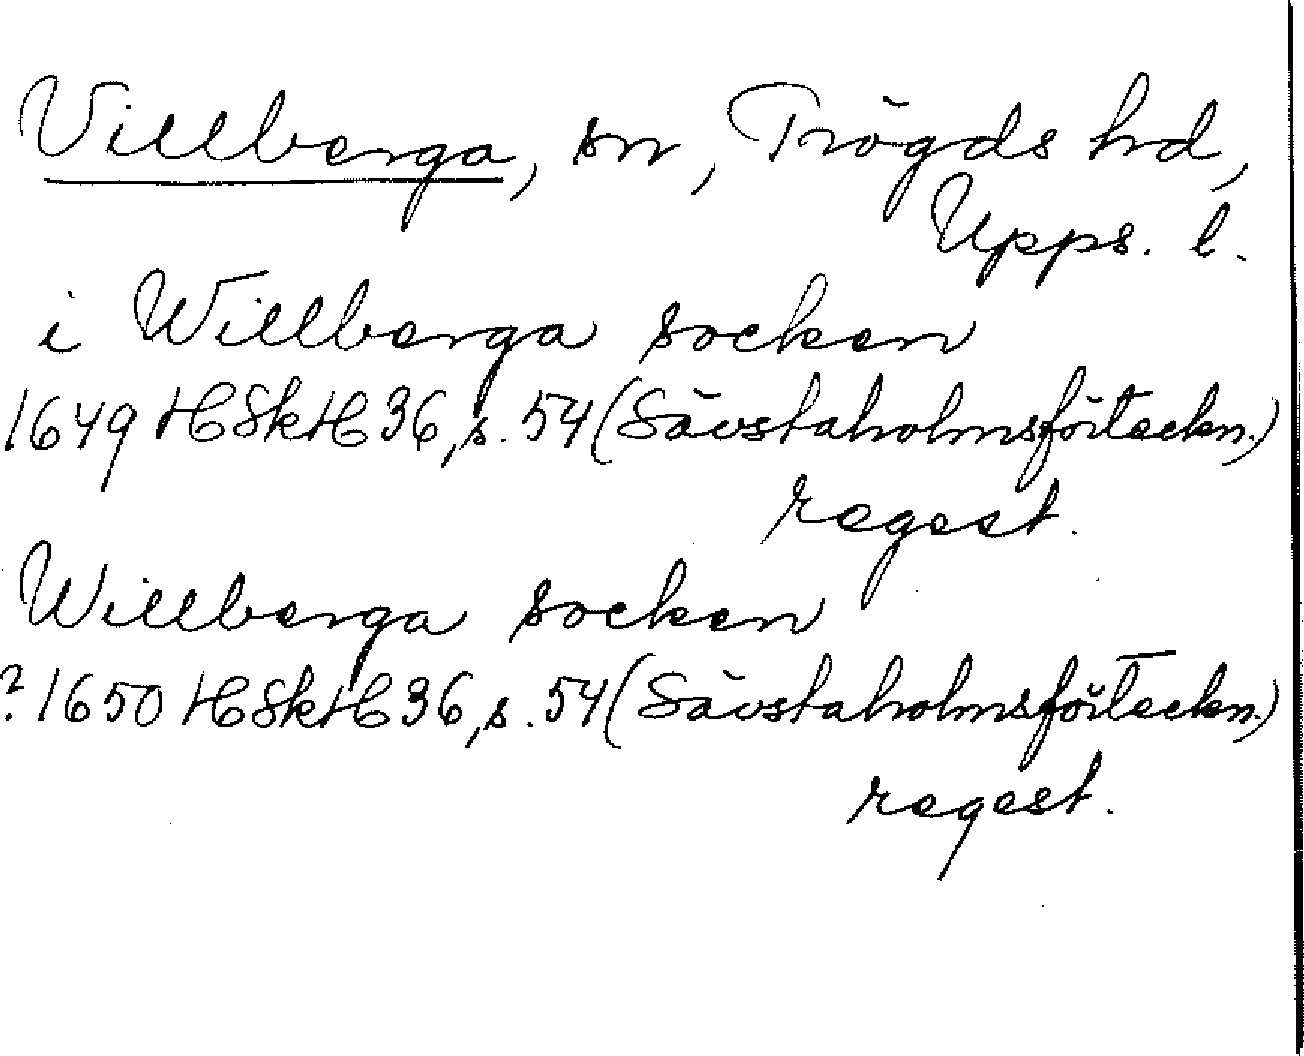 Villberga, sn, Trögds hd,
Upps. l.
i Willberga socken
1649 HSkH 36, s. 54 (Sävstaholmsförteckn.)
regest.
Willberga socken
? 1650 HSkH 36, s. 54 (Sävstaholmsförteckn.)
regest.